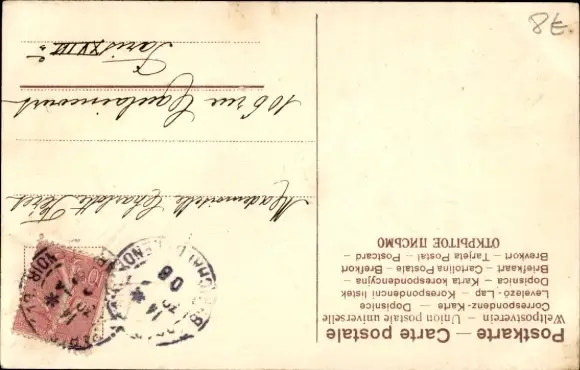 Postkarte — Carte postale
Weltpostverein — Union postale universelle
Correspondenz-Karte — Dopisnice
Levelező-Lap — Korespondenčni listek
Dopisnica — Karta korespondencyjna
Briefkaart — Cartolina Postale — Brefkort
Brevkort — Tarjeta Postal — Postcard
ОТКРЫТОЕ ПИСЬМО
Mademoiselle Charlotte
106 rue Caulaincourt
Paris XVIII e
8E.
08
10